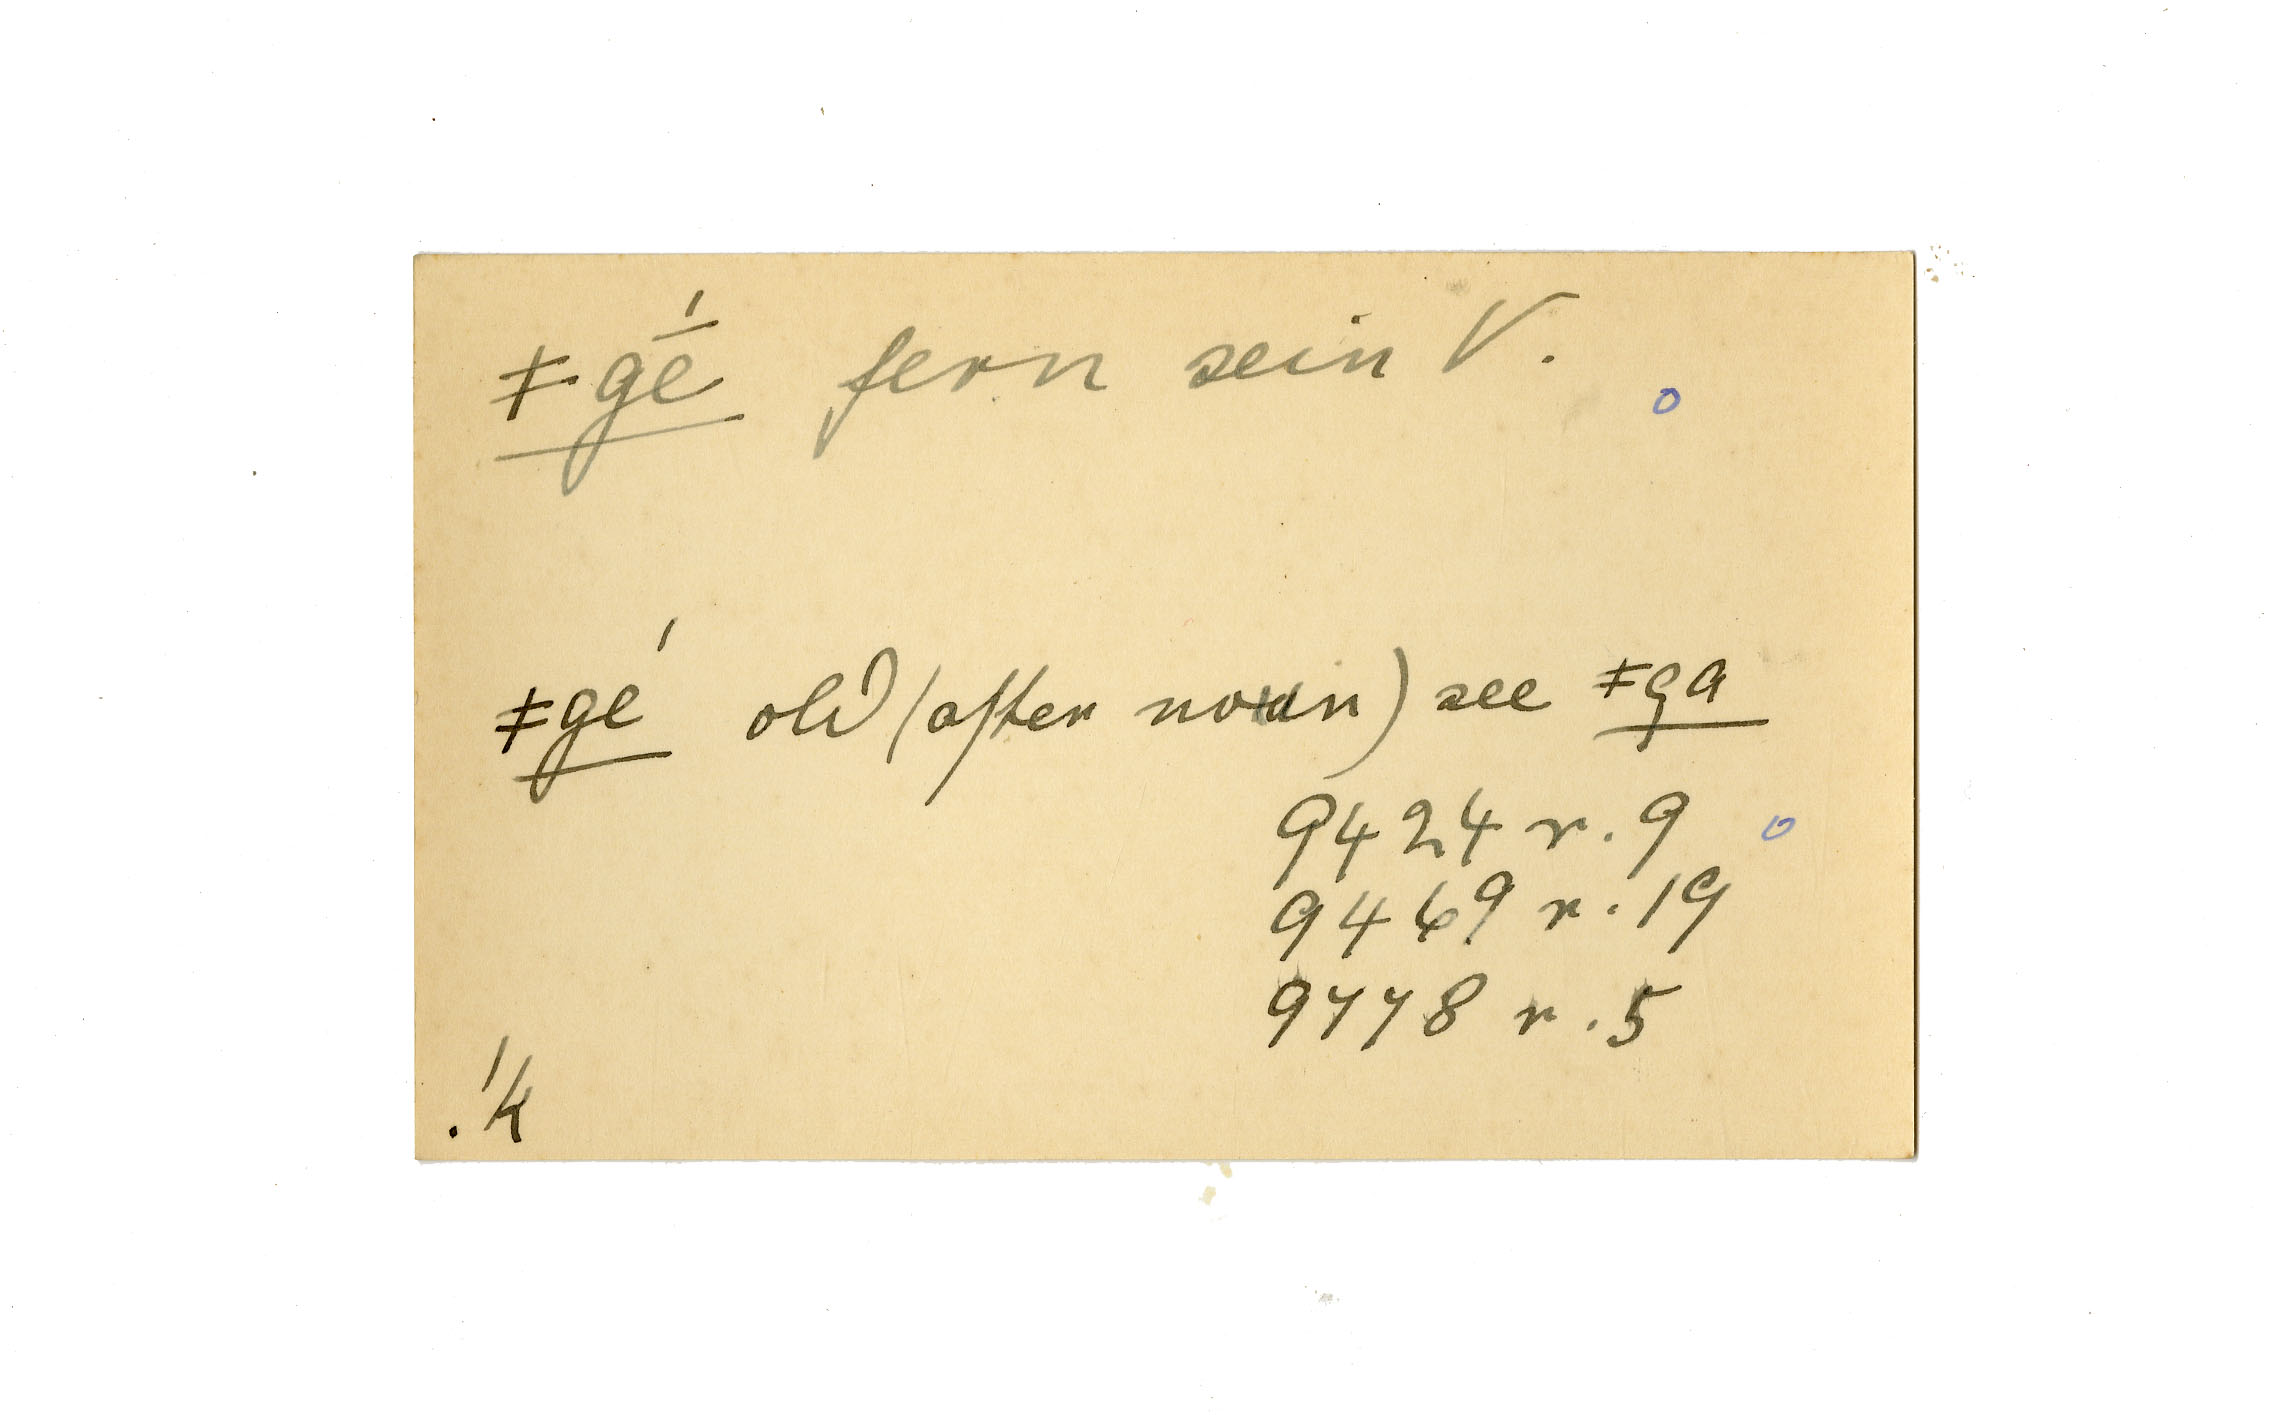 ǂgḗ fern sein V.
ǂgé old (after noun) see ǂga
9424 r. 9
9469 r. 19
9778 r. 5
. 'k